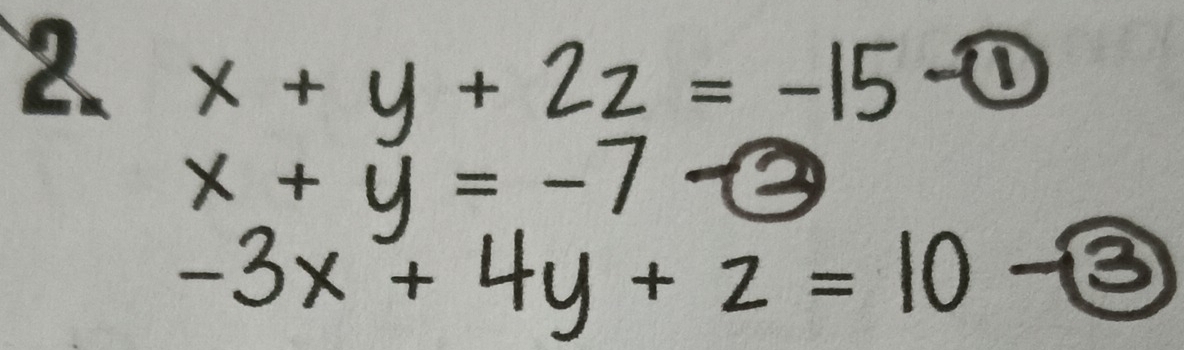 2. x + y + 2z = -15 -①
x + y = -7 -②
-3x + 4y + z = 10 -③